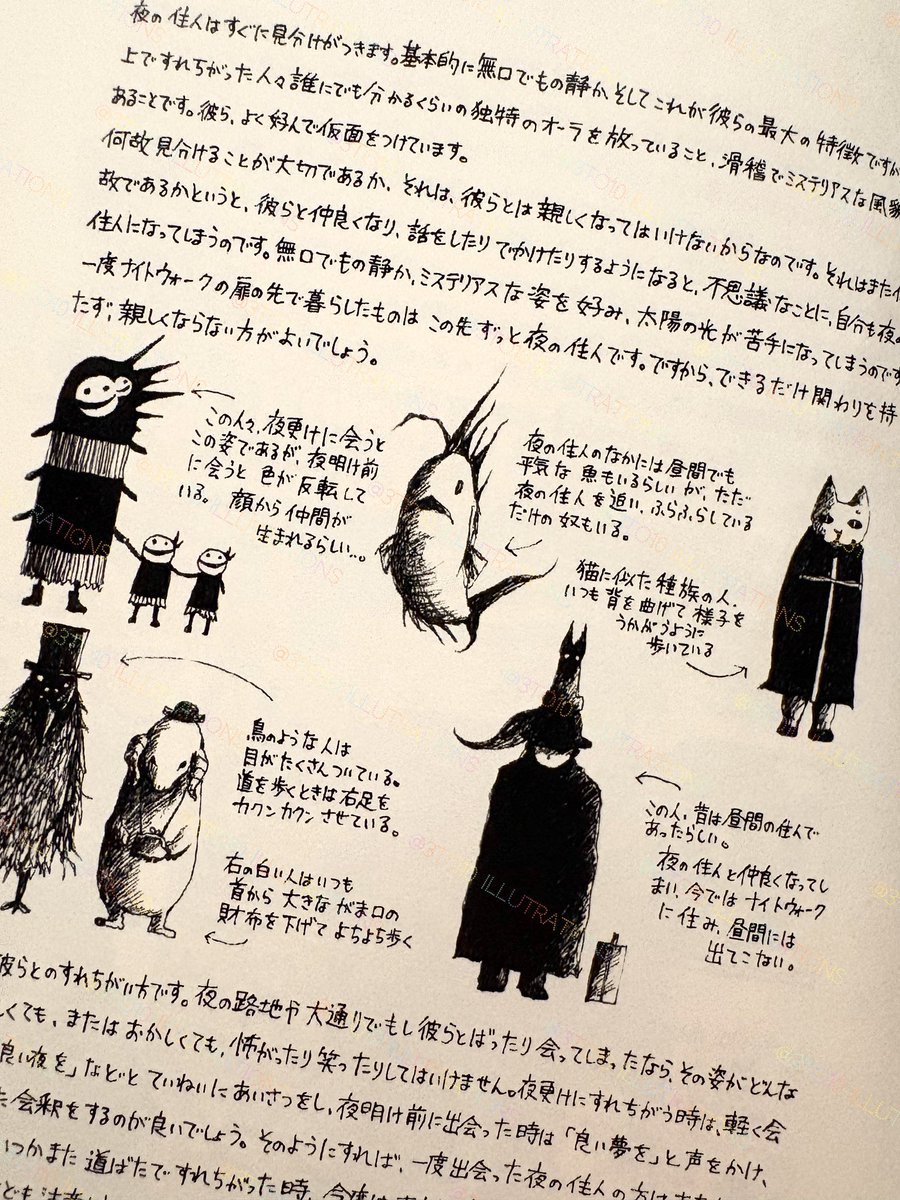 夜の住人はすぐに見分けがつきます。基本的に無口でもの静か、そしてこれが彼らの最大の特徴ですが
上ですれちがった人々誰にでも分かるくらいの独特のオーラを放っていること、滑稽でミステリアスな風貌
あることです。彼ら、よく好んで仮面をつけています。
何故見分けることが大切であるか、それは、彼らとは親しくなってはいけないからなのです。それはまた何
故であるかというと、彼らと仲良くなり、話をしたりでかけたりするようになると、不思議なことに、自分も夜の
住人になってしまうのです。無口でもの静か、ミステリアスな姿を好み、太陽の光が苦手になってしまうのです
一度ナイトウォークの扉の先で暮らしたものは この先ずっと夜の住人です。ですから、できるだけ関わりを持
たず、親しくならない方がよいでしょう。
この人々、夜更けに会うと
この姿であるが、夜明け前
に会うと 色が反転して
いる。 顔から仲間が
生まれるらしい…。
夜の住人のなかには昼間でも
平気な 魚もいるらしいが、ただ
夜の住人を追い、ふらふらしている
だけの奴もいる。
猫に似た種族の人.
いつも背を曲げて様子を
うかがうように
歩いている
鳥のような人は
目がたくさんついている。
道を歩くときは右足を
カクンカクン させている。
右の白い人はいつも
首から 大きな がま口の
財布を下げて よちよち歩く
この人、昔は昼間の住人で
あったらしい。
夜の住人と仲良くなってし
まい、今ではナイトウォーク
に住み、昼間には
出てこない。
彼らとのすれちがい方です。夜の路地や大通りでもし彼らとばったり会ってしまったなら、その姿がどんな
しくても、またはおかしくても、怖がったり笑ったりしてはいけません。夜更けにすれちがう時は、軽く会
良い夜を」などと ていねいにあいさつをし、夜明け前に出会った時は「良い夢を」と声をかけ、
会釈をするのが良いでしょう。そのようにすれば、一度出会った夜の住人の方は
いつかまた 道ばたですれちがった時、今度は
@3TO10 ILLUTRATIONS